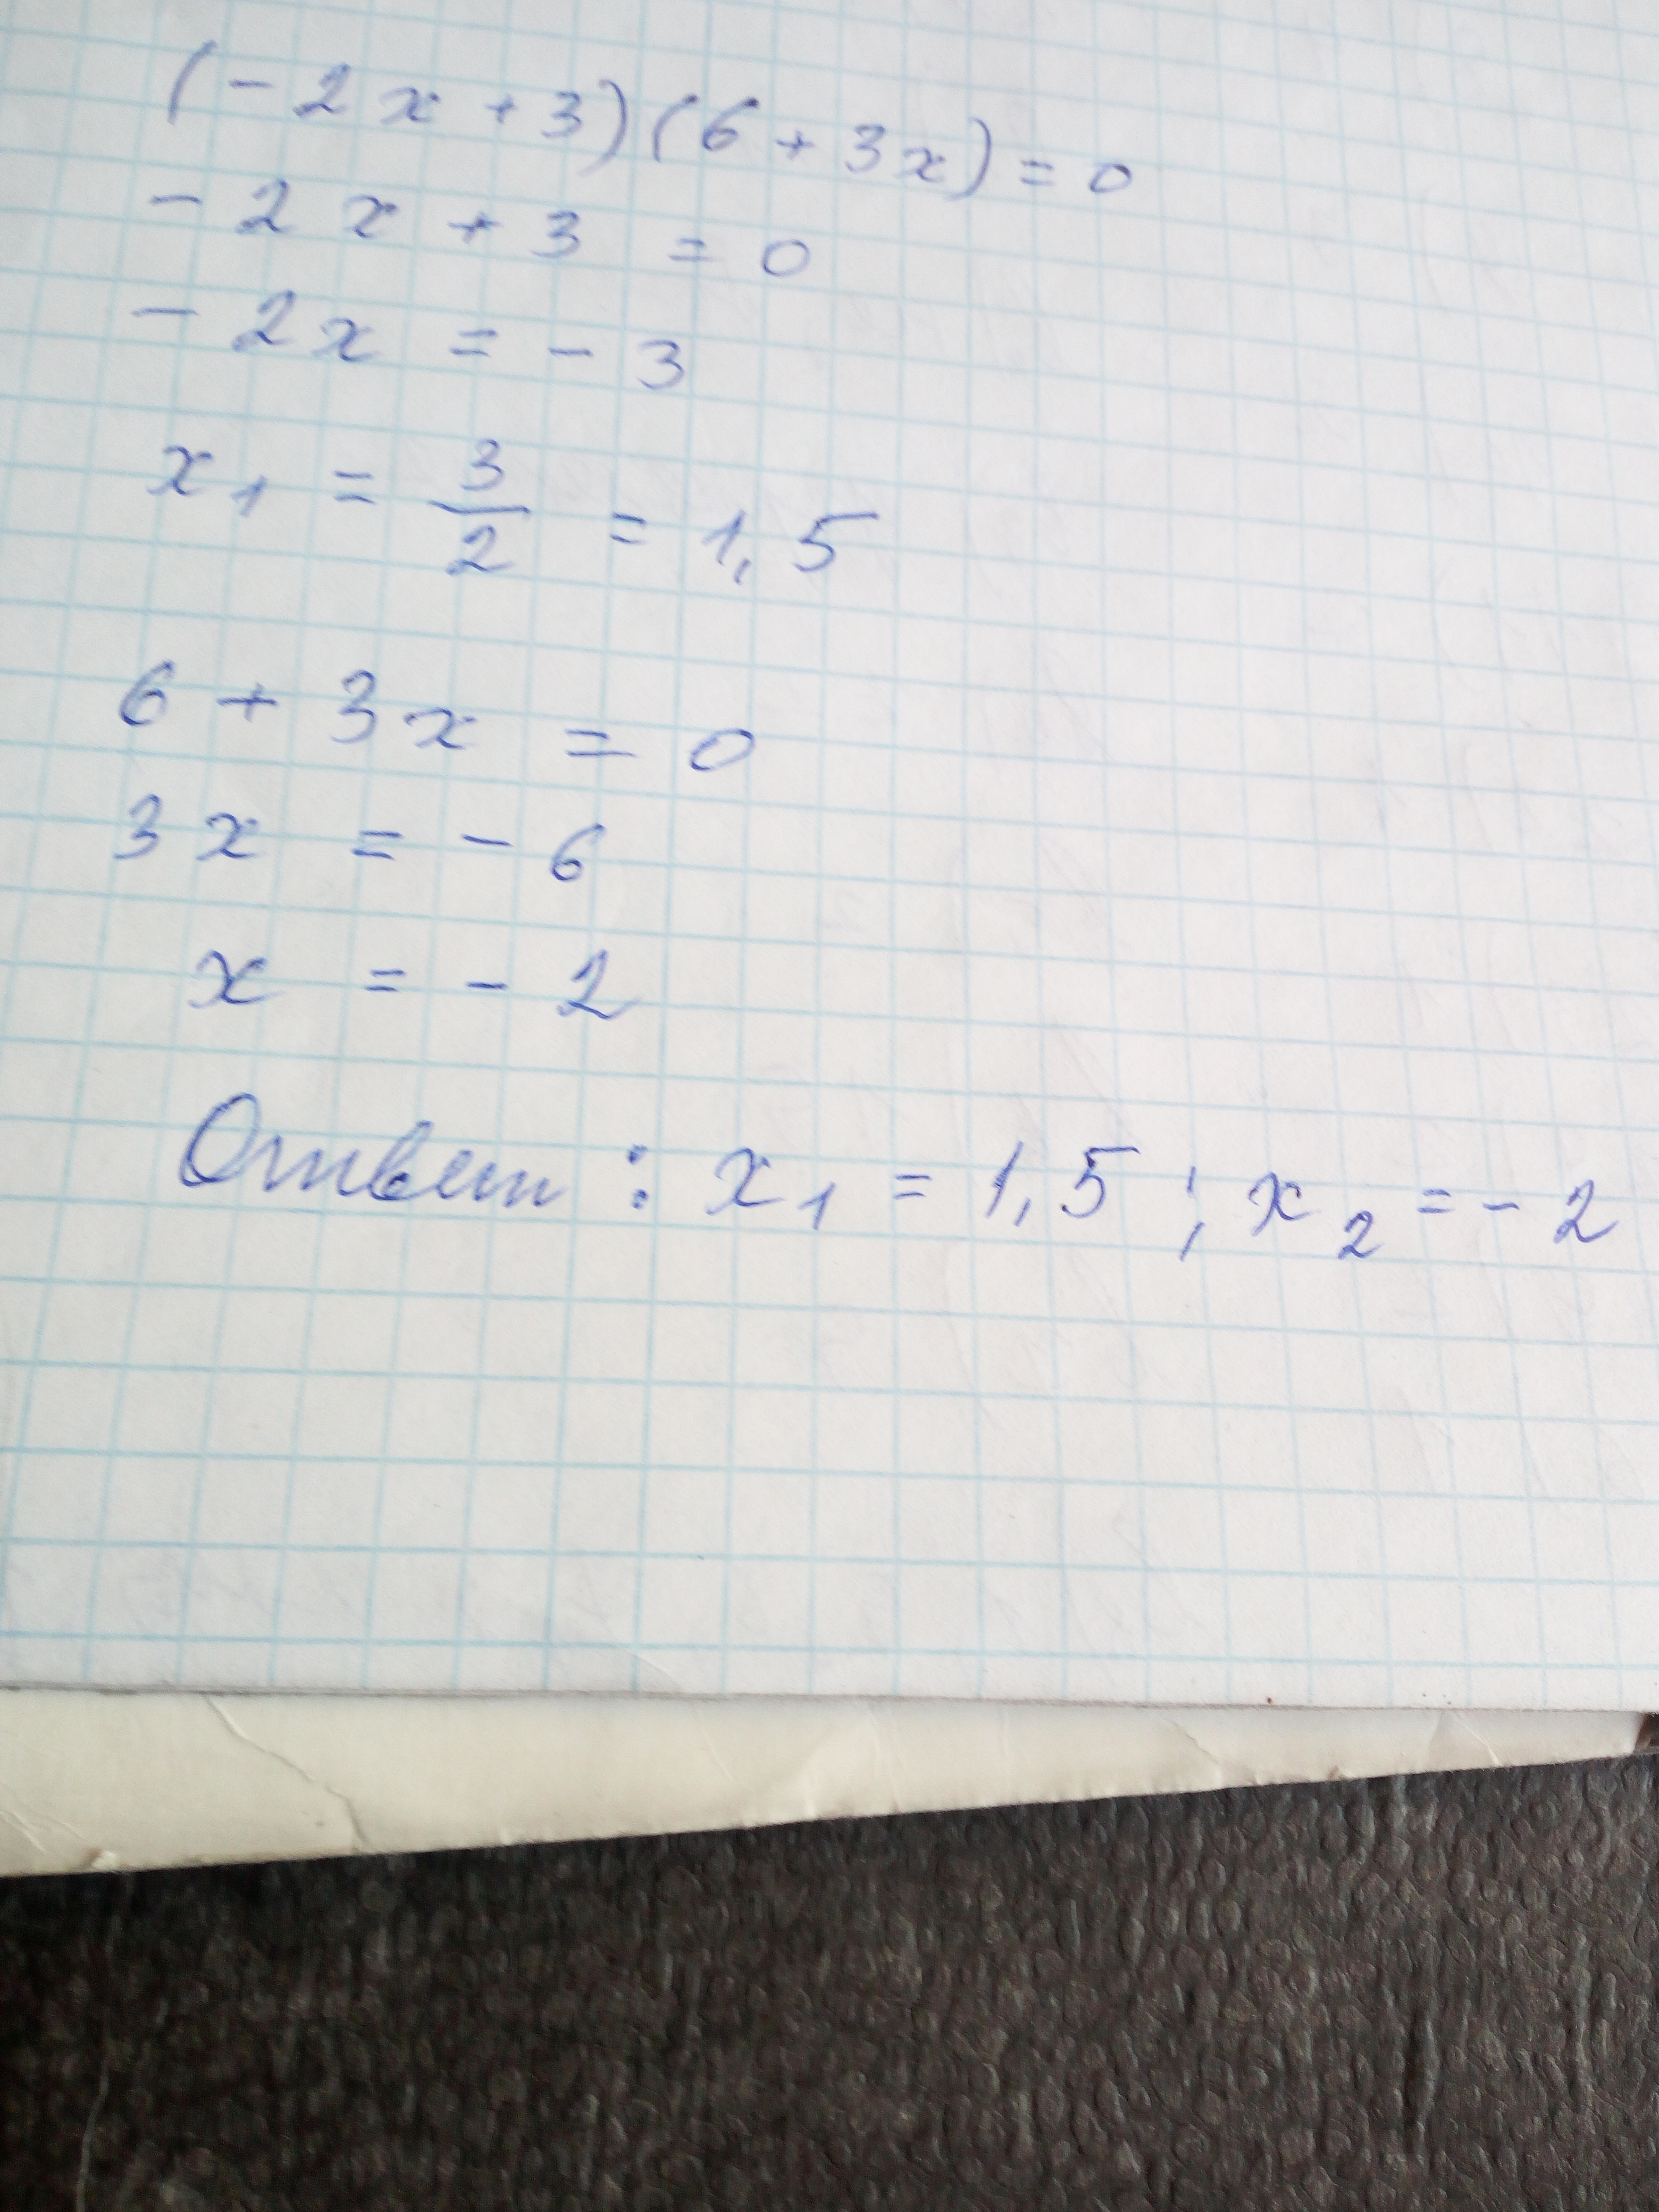 (-2x+3)(6+3x)=0
-2x+3=0
-2x=-3
x₁ = 3/2 = 1,5
6+3x=0
3x=-6
x=-2
Ответ: x₁=1,5; x₂=-2